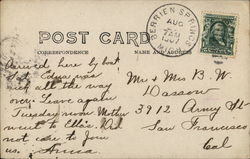 POST CARD
CORRESPONDENCE
NAME AND ADDRESS
BERRIEN SPRINGS
AUG
Arrived here by boat
Sat. Edna was
sick all the way
over. Leave again
Tuesday noon. Mother
went to Ella's. Did
not care to join
us. Anna
Mr & Mrs B. W.
Dassow
3912 Army St
San Francisco
Cal